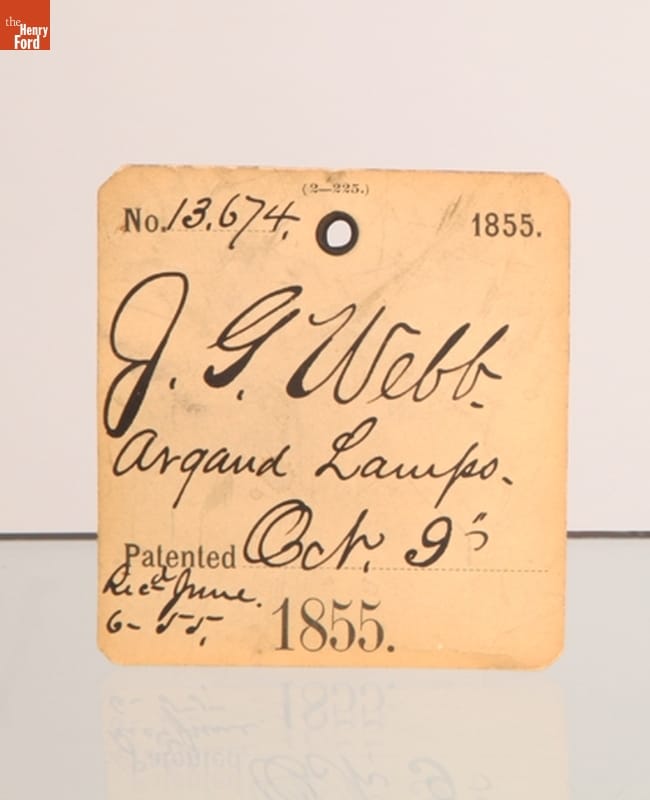 the
Henry
Ford
(2—225.)
No. 13.674. 1855.
J. G. Webb.
Argand Lamps.
Patented Oct. 9"
Rec'd June.
6-55.
1855.